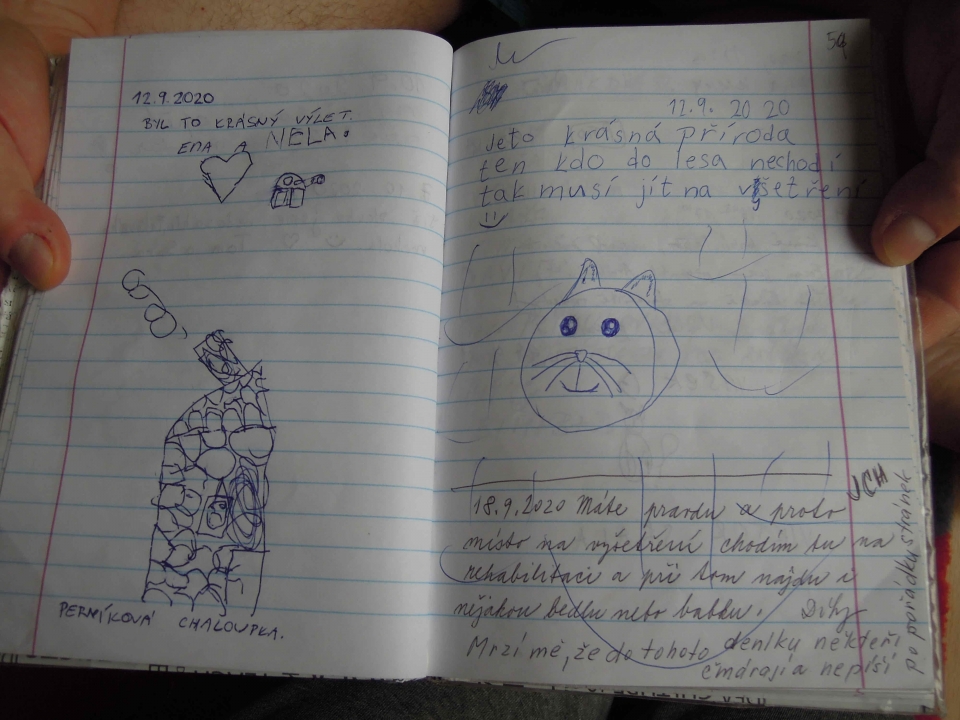 12.9.2020
BYL TO KRÁSNÝ VÝLET.
EMA A NELA.
PERNÍKOVÁ CHALOUPKA.
59
12.9. 2020
Jeto krásná příroda
ten kdo do lesa nechodí
tak musí jít na všetření
18.9.2020 Máte pravdu a proto
místo na vyšetření chodím tu na
rehabilitaci a při tom najdu i
nějakou bedlu nebo babku. Díky
Mrzí mě, že do tohoto deníku někteří
čmárají a nepíší
po pořádku stránek
UCH